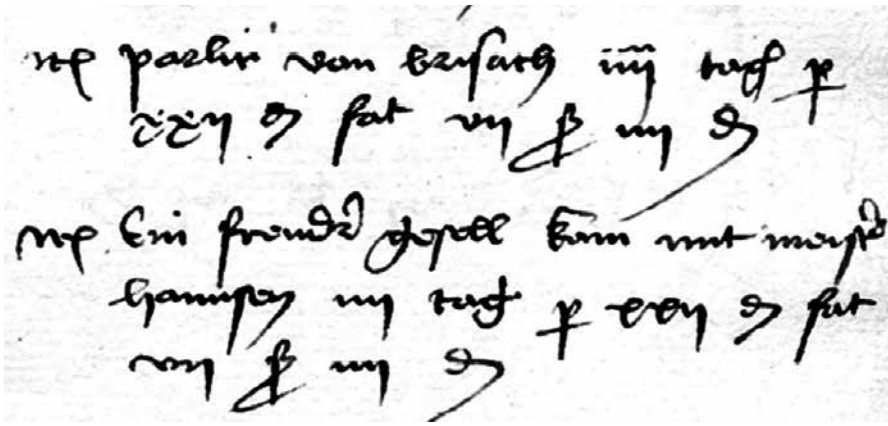 itm parlir von brisach iiii tag p
xxii d fat vii ß iiii d
itm Ein frender gesell kam mit meister
hannsen iiii tag p xxii d fat
vii ß iiii d